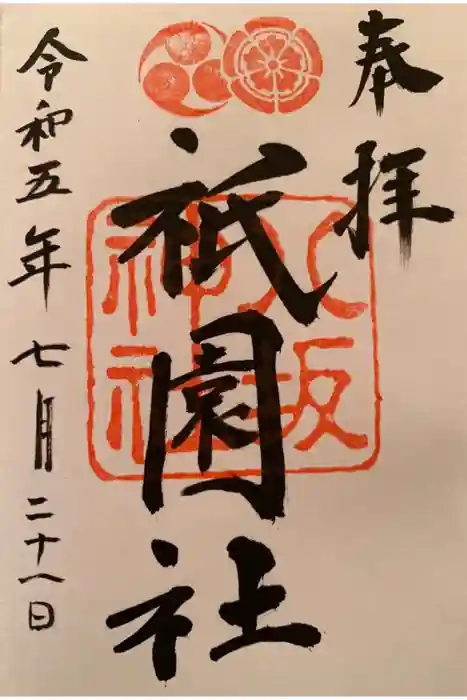 奉拝
八坂
神社
祇園社
令和五年七月二十八日